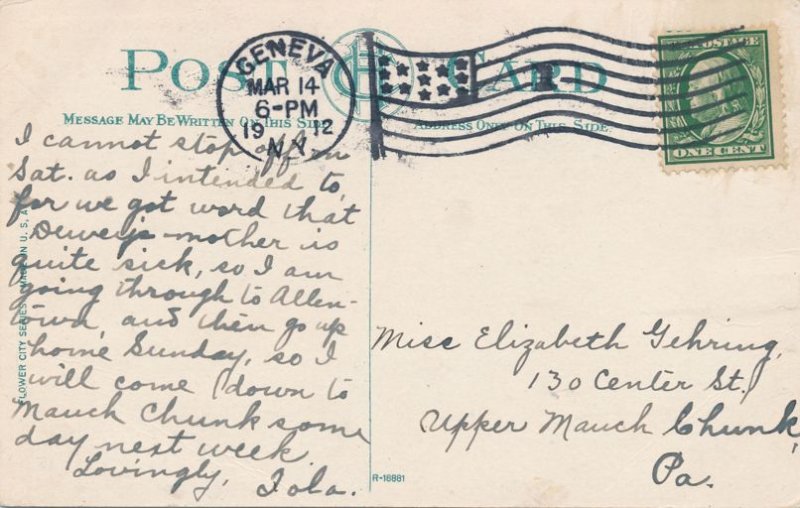 POST CARD
GENEVA
MAR 14
6-PM
19 12
N.Y.
U.S. POSTAGE
ONE CENT
MESSAGE MAY BE WRITTEN ON THIS SIDE
ADDRESS ONLY ON THIS SIDE.
I cannot stop off on
Sat. as I intended to,
for we got word that
Dewey's mother is
quite sick, so I am
going through to Allen-
town, and then go up
home Sunday, so I
will come down to
Mauch Chunk some
day next week.
Lovingly,
Iola.
FLOWER CITY SERIES MADE IN U. S. A.
Miss Elizabeth Gehring,
130 Center St.
Upper Mauch Chunk,
Pa.
R-16881